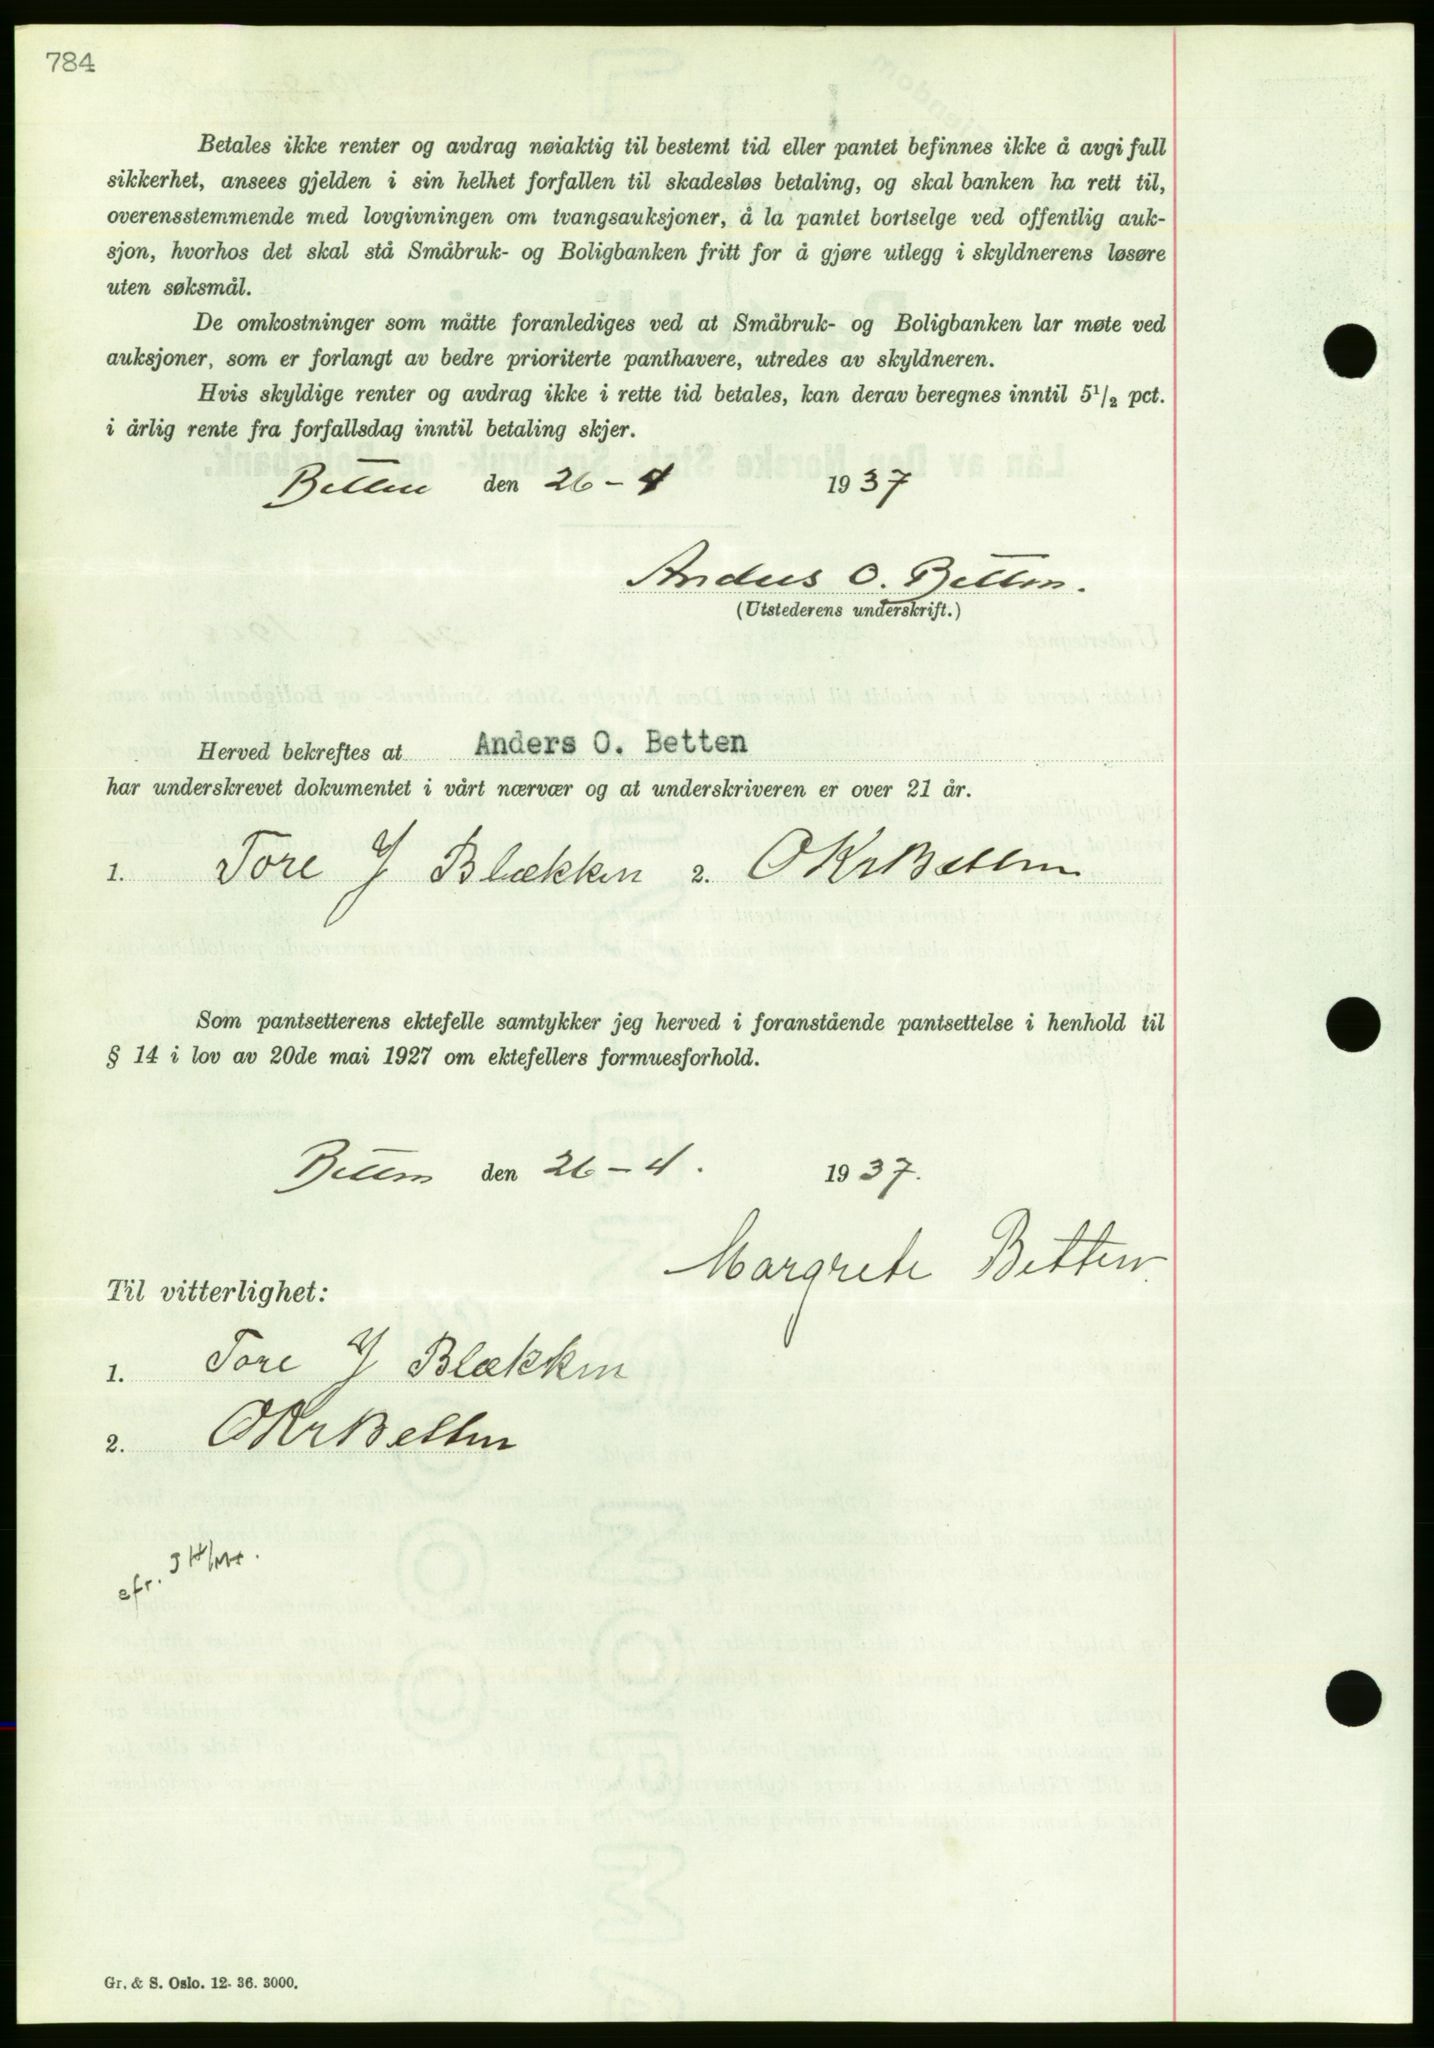 784
Betales ikke renter og avdrag nøiaktig til bestemt tid eller pantet befinnes ikke å avgi full
sikkerhet, ansees gjelden i sin helhet forfallen til skadesløs betaling, og skal banken ha rett til,
overensstemmende med lovgivningen om tvangsauksjoner, å la pantet bortselge ved offentlig auk-
sjon, hvorhos det skal stå Småbruk- og Boligbanken fritt for å gjøre utlegg i skyldnerens løsøre
uten søksmål.
De omkostninger som måtte foranlediges ved at Småbruk- og Boligbanken lar møte ved
auksjoner, som er forlangt av bedre prioriterte panthavere, utredes av skyldneren.
Hvis skyldige renter og avdrag ikke i rette tid betales, kan derav beregnes inntil 5 1/2 pct.
i årlig rente fra forfallsdag inntil betaling skjer.
Betten den 26-4 1937
Anders O. Betten.
(Utstederens underskrift.)
Herved bekreftes at Anders O. Betten
har underskrevet dokumentet i vårt nærvær og at underskriveren er over 21 år.
1. Tore J Blækken 2. OKrBetten
Som pantsetterens ektefelle samtykker jeg herved i foranstående pantsettelse i henhold til
§ 14 i lov av 20de mai 1927 om ektefellers formuesforhold.
Betten den 26-4. 1937.
Margrete Betten
Til vitterlighet:
1. Tore J Blækken
2. OKrBetten
efr.
Gr. & S. Oslo. 12- 36. 3000.